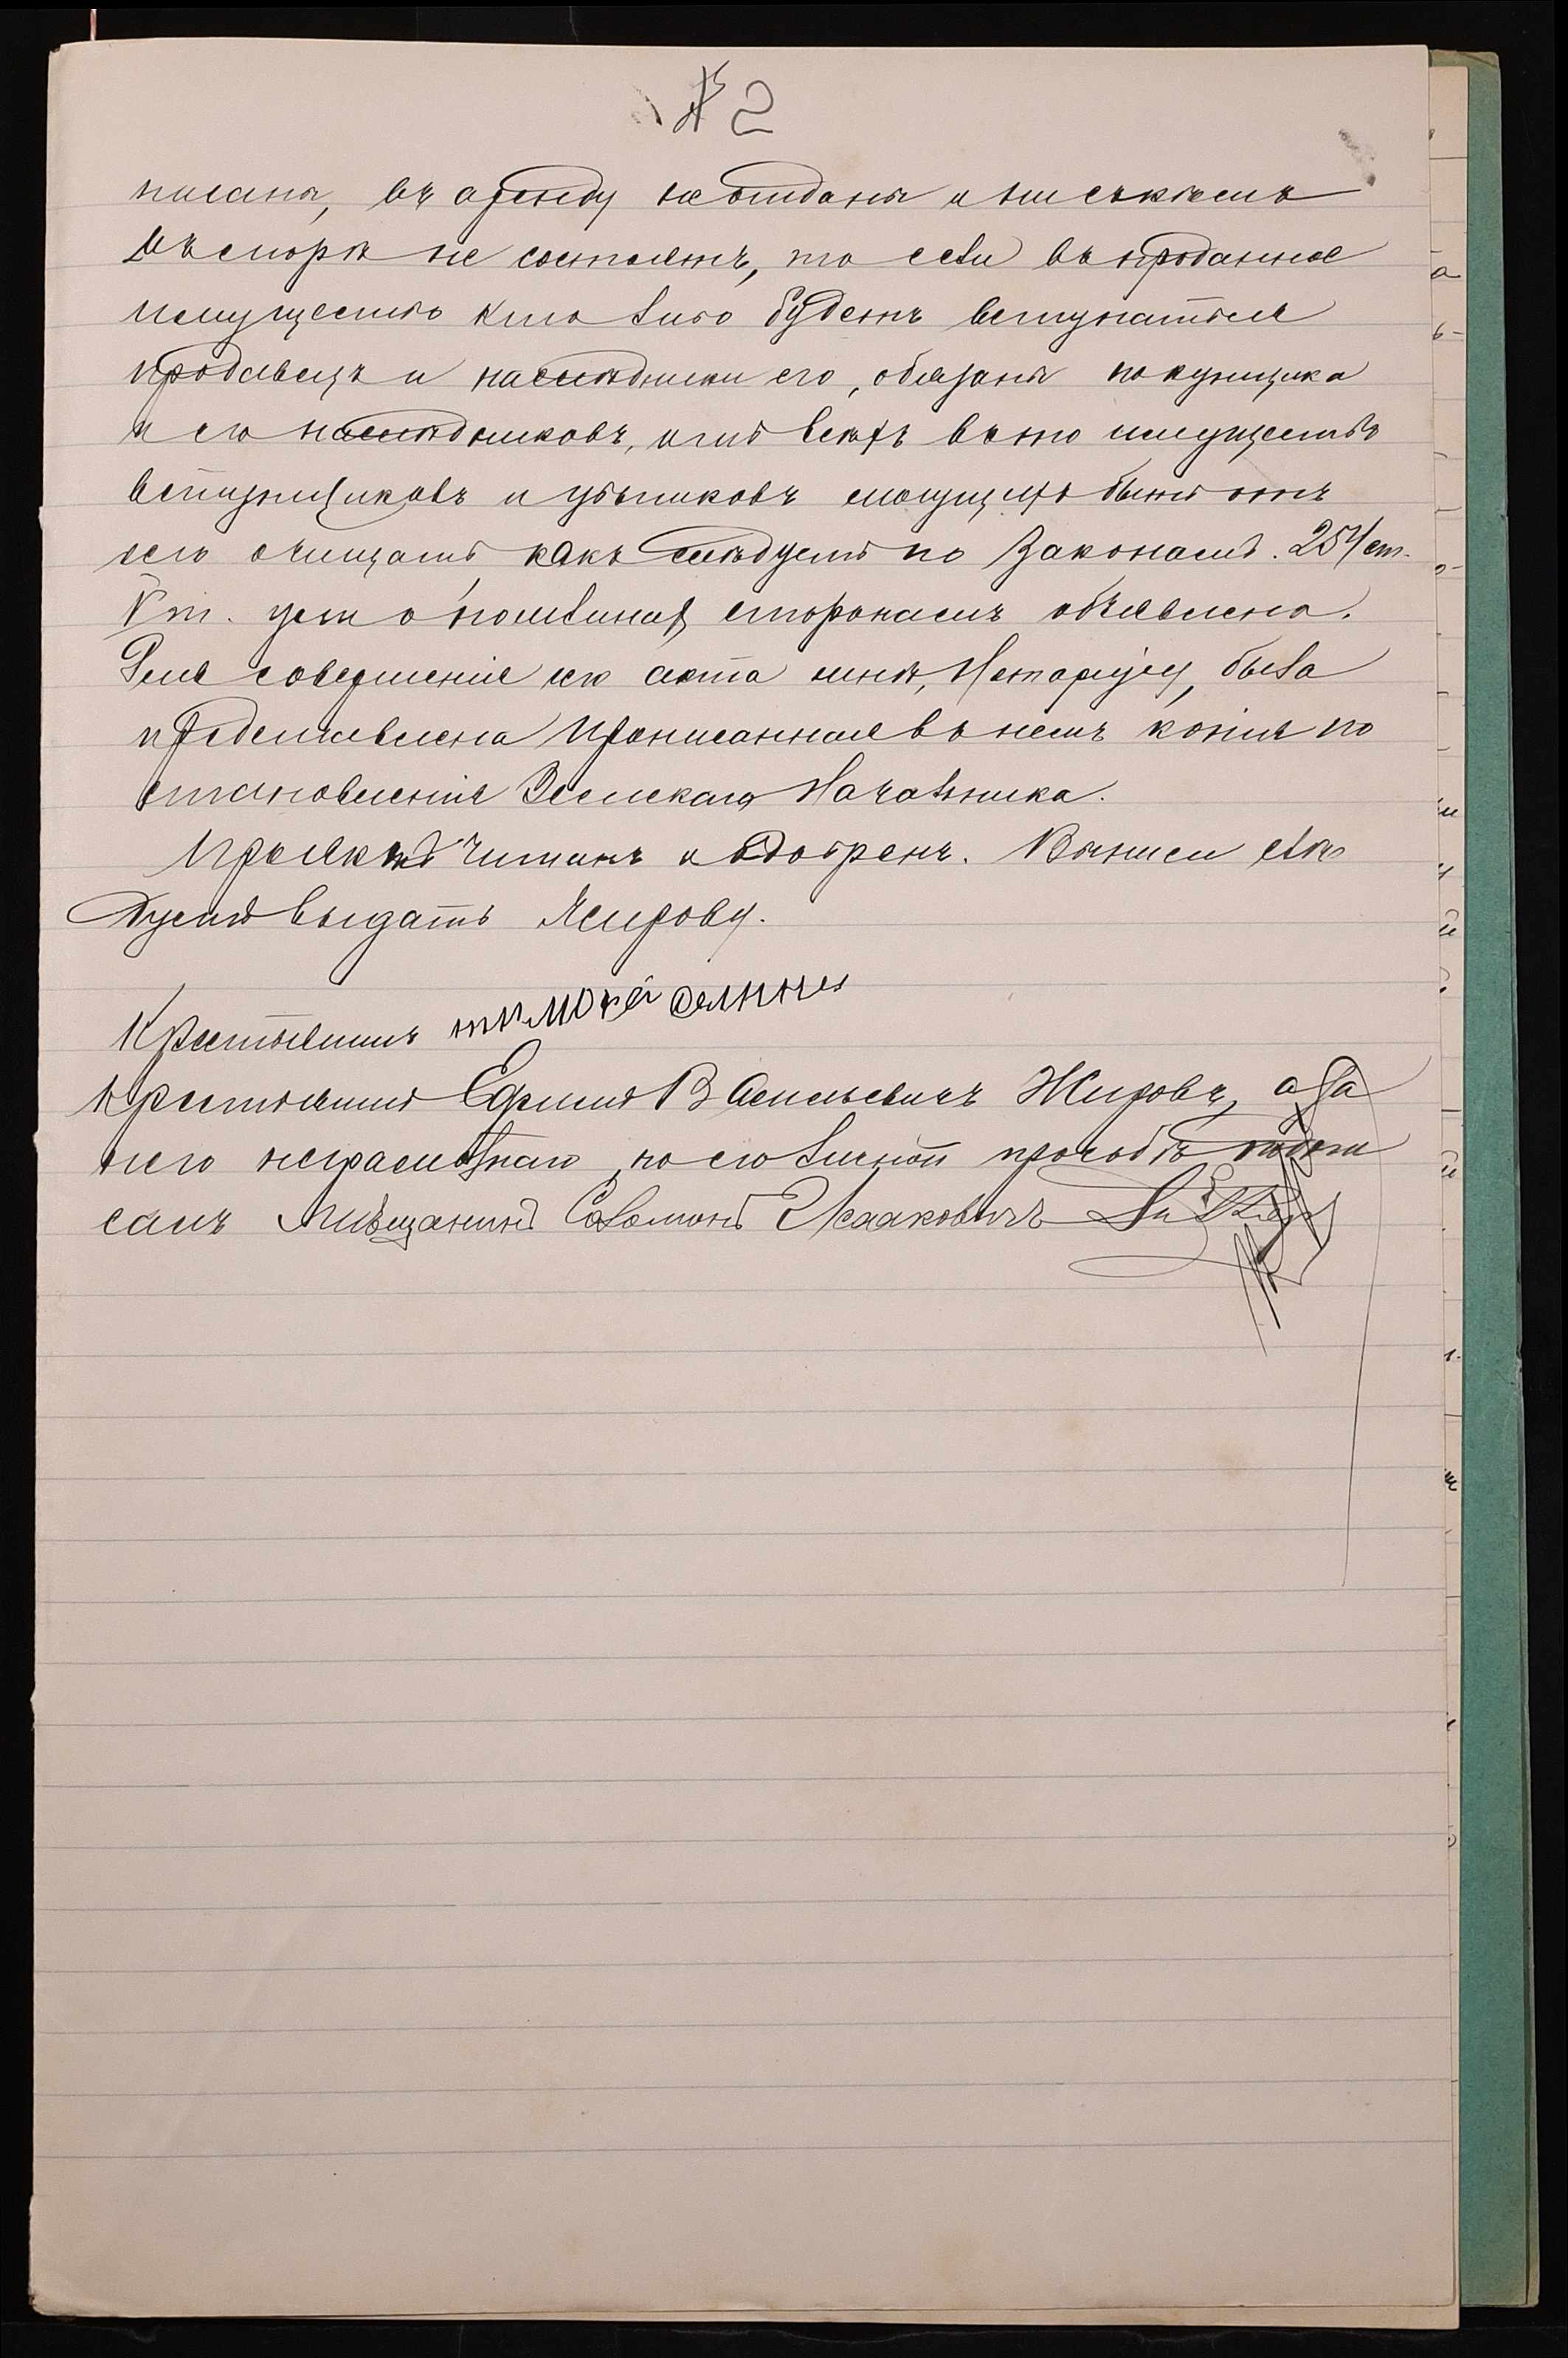 № 2
писаны, въ аренду не отданы и ни съ кѣмъ
въ спорѣ не состоятъ, то если въ проданное
имущество кто либо будетъ вступаться
продавецъ и наслѣдники его, обязаны покупщика
и его наслѣдниковъ, отъ всѣхъ въ то имущество
вступщиковъ и убытковъ могущихъ быть отъ
сего очищать какъ слѣдуетъ по законамъ. 257 ст.
Уст. о пошлинахъ сторонамъ объявлена.
Для совершенія сего акта мнѣ, Нотаріусу, была
представлена прописанная въ немъ копія по
становленія Земскаго Начальника.
Проектъ читанъ и одобренъ. Выпись слѣ
дуетъ выдать Жирову.
Крестьянинъ тимофей
Крестьянинъ Ефимъ Васильевичъ Жировъ, а за
него неграмотнаго, по его личной просьбѣ подпи
салъ Мѣщанинъ Соломонъ Исааковичъ